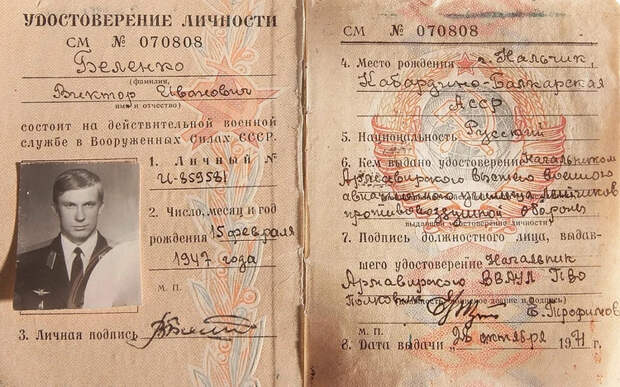 УДОСТОВЕРЕНИЕ ЛИЧНОСТИ
СМ № 070808
Беленко
(фамилия,
Виктор Иванович
имя и отчество)
состоит на действительной военной
службе в Вооруженных Силах СССР.
1. Личный №
И-859581
2. Число, месяц и год
рождения 15 февраля
1947 года
м. п.
3. Личная подпись
СМ № 070808
4. Место рождения г. Нальчик,
Кабардино-Балкарская
АССР
5. Национальность Русский
6. Кем выдано удостоверение Начальником
Армавирского высшего военного
авиационного училища летчиков
противовоздушной обороны
выдавшей удостоверение личности)
7. Подпись должностного лица, выдав-
шего удостоверение Начальник
Армавирского ВВАУЛ ПВО
полковник Е. Трофимов
м. п.
8. Дата выдачи „26 октября 1971 г.